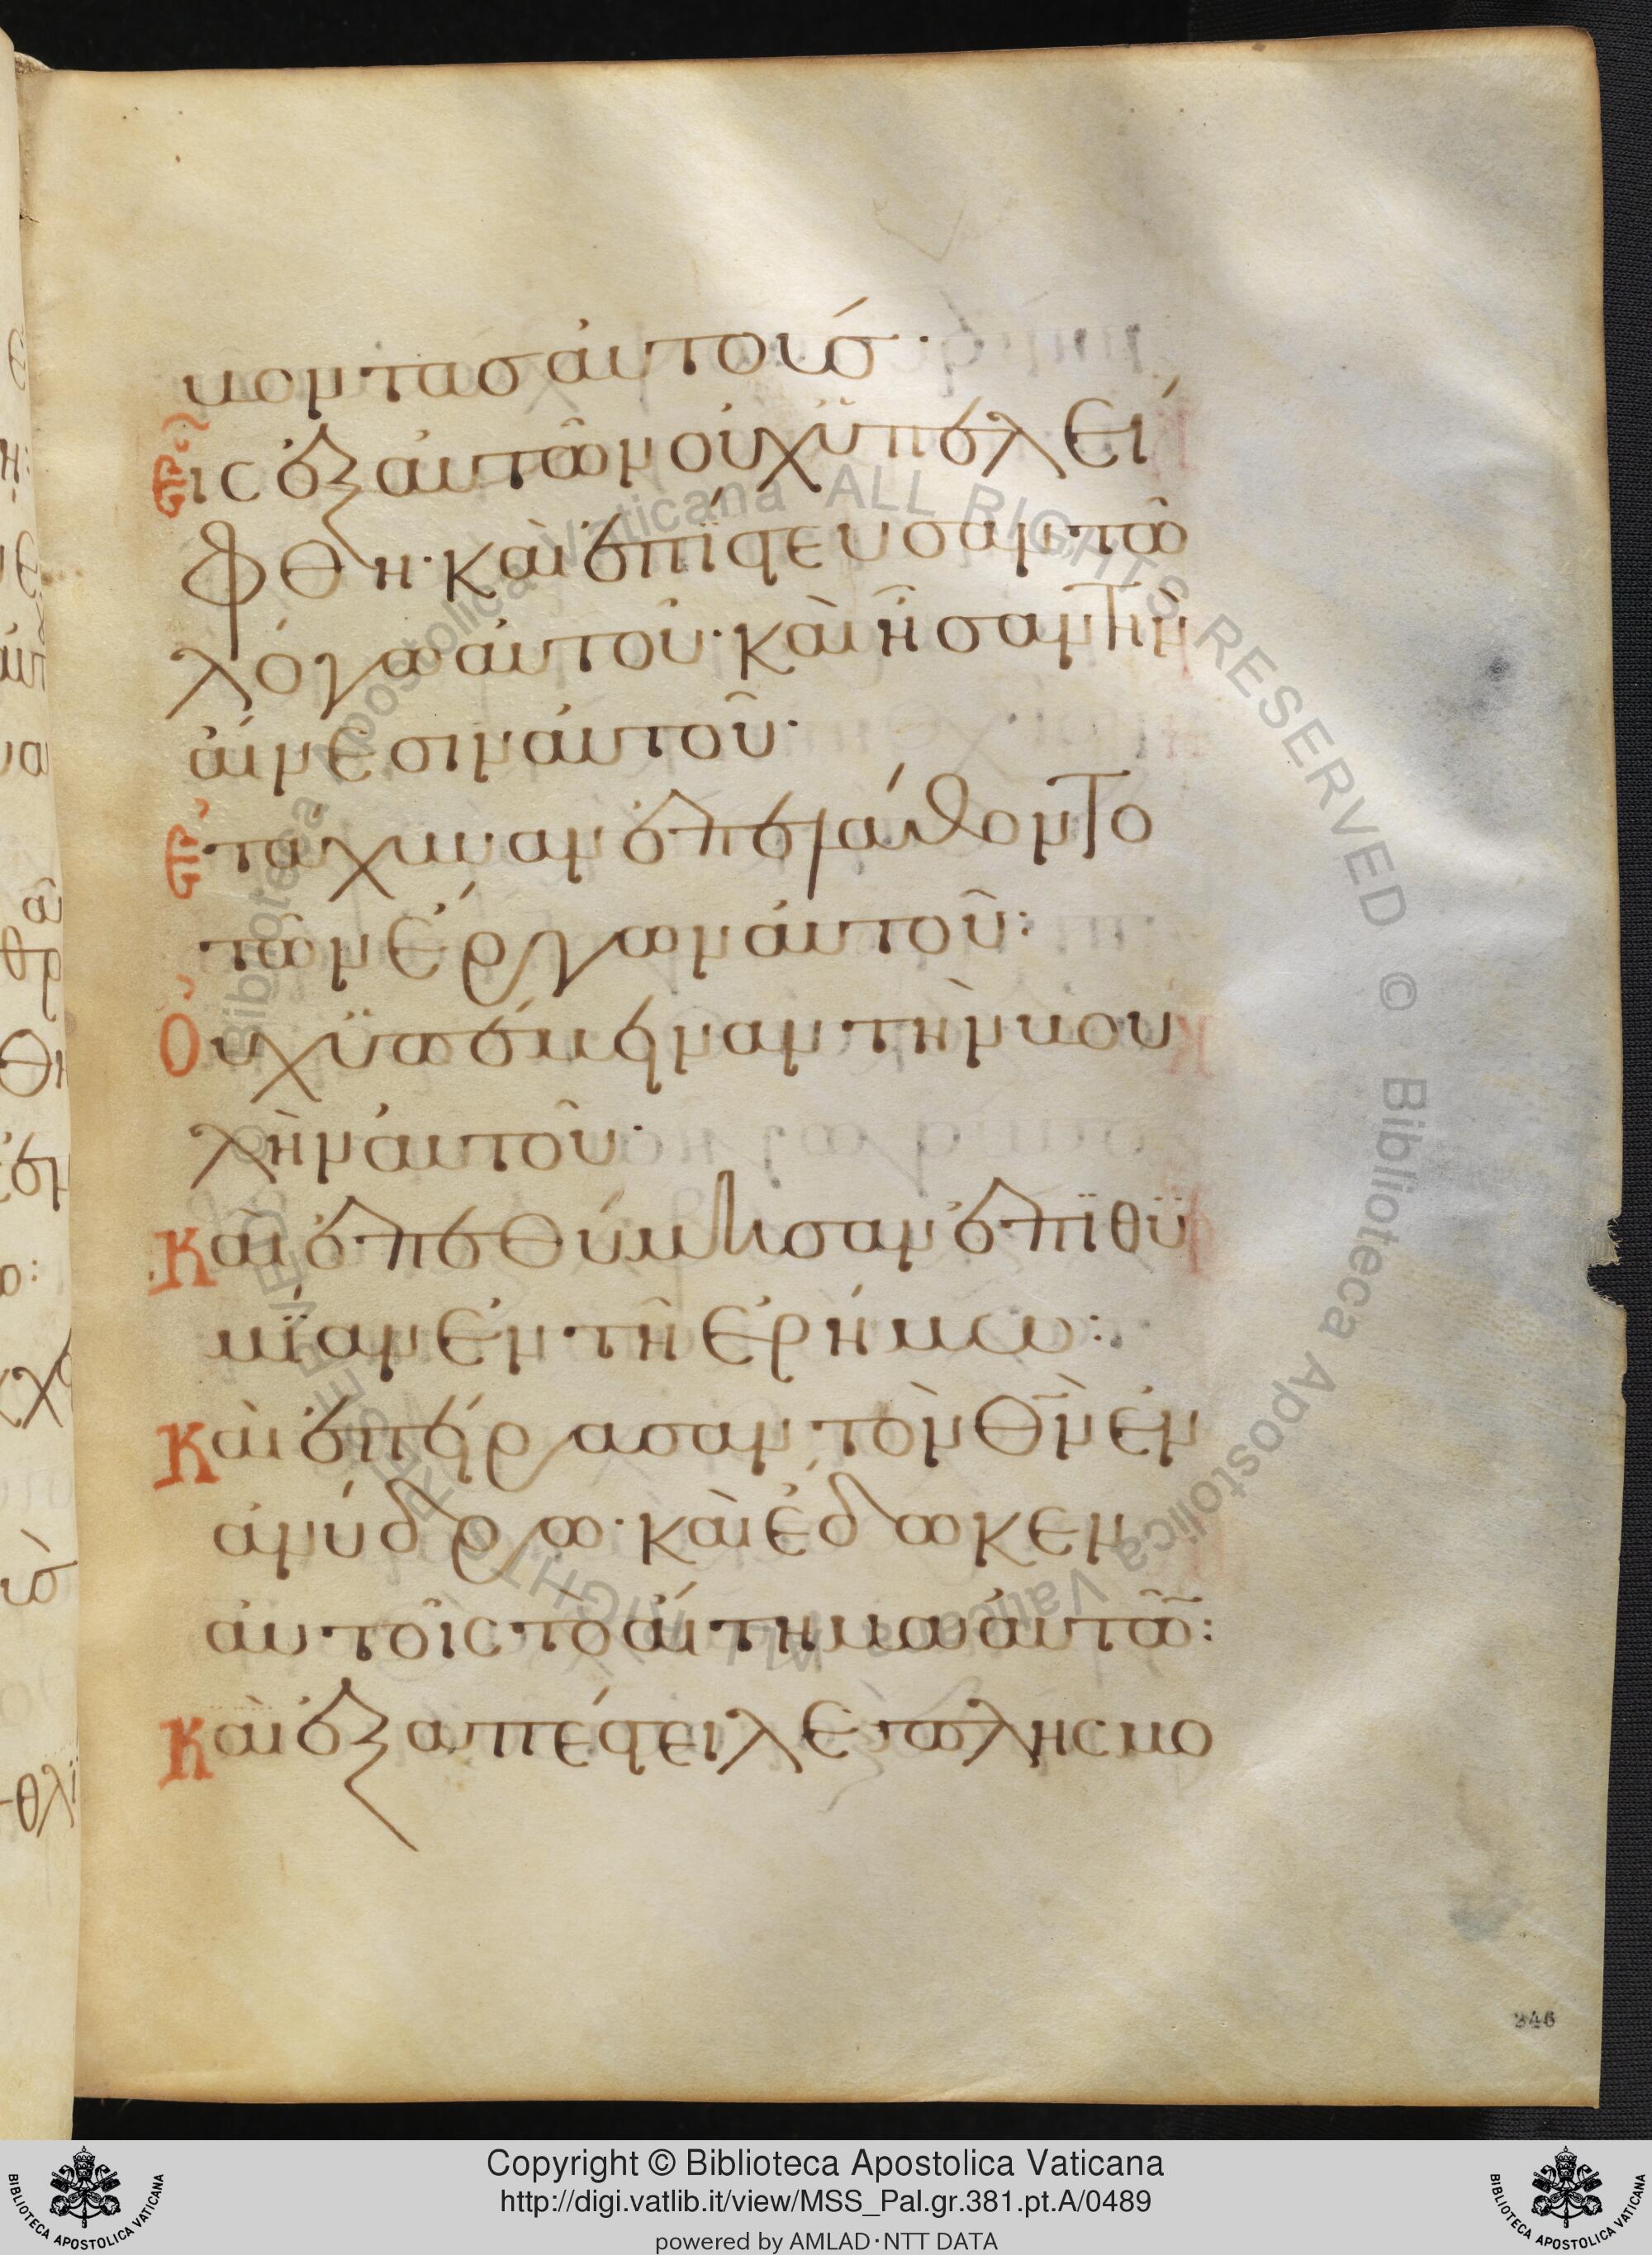 βοντας αὐτούς·
Εἷς ἐξ αὐτῶν οὐχ ὑπελεί
φθη· καὶ ἐπίστευσαν τῶ
λόγω αὐτοῦ· καὶ ἦσαν τὴν
αἴνεσιν αὐτοῦ·
Ἐτάχυναν ἐπελάθοντο
τῶν ἔργων αὐτοῦ:
Οὐχ ὑπέμειναν τὴν βου
λὴν αὐτοῦ·
Καὶ ἐπεθύμησαν ἐπιθυ
μίαν ἐν τῆ ἐρήμω:
Καὶ ἐπείρασαν τὸν θν ἐν
ἀνύδρω· καὶ ἔδωκεν
αὐτοῖς τὸ αἴτημα αὐτῶ:
Καὶ ἐξαπέστειλε πλησμο
346
Biblioteca Apostolica Vaticana ALL RIGHTS RESERVED © Biblioteca Apostolica Vaticana ALL RIGHTS RESERVED ©
BIBLIOTECA APOSTOLICA VATICANA
Copyright © Biblioteca Apostolica Vaticana
http://digi.vatlib.it/view/MSS_Pal.gr.381.pt.A/0489
powered by AMLAD·NTT DATA
BIBLIOTECA APOSTOLICA VATICANA